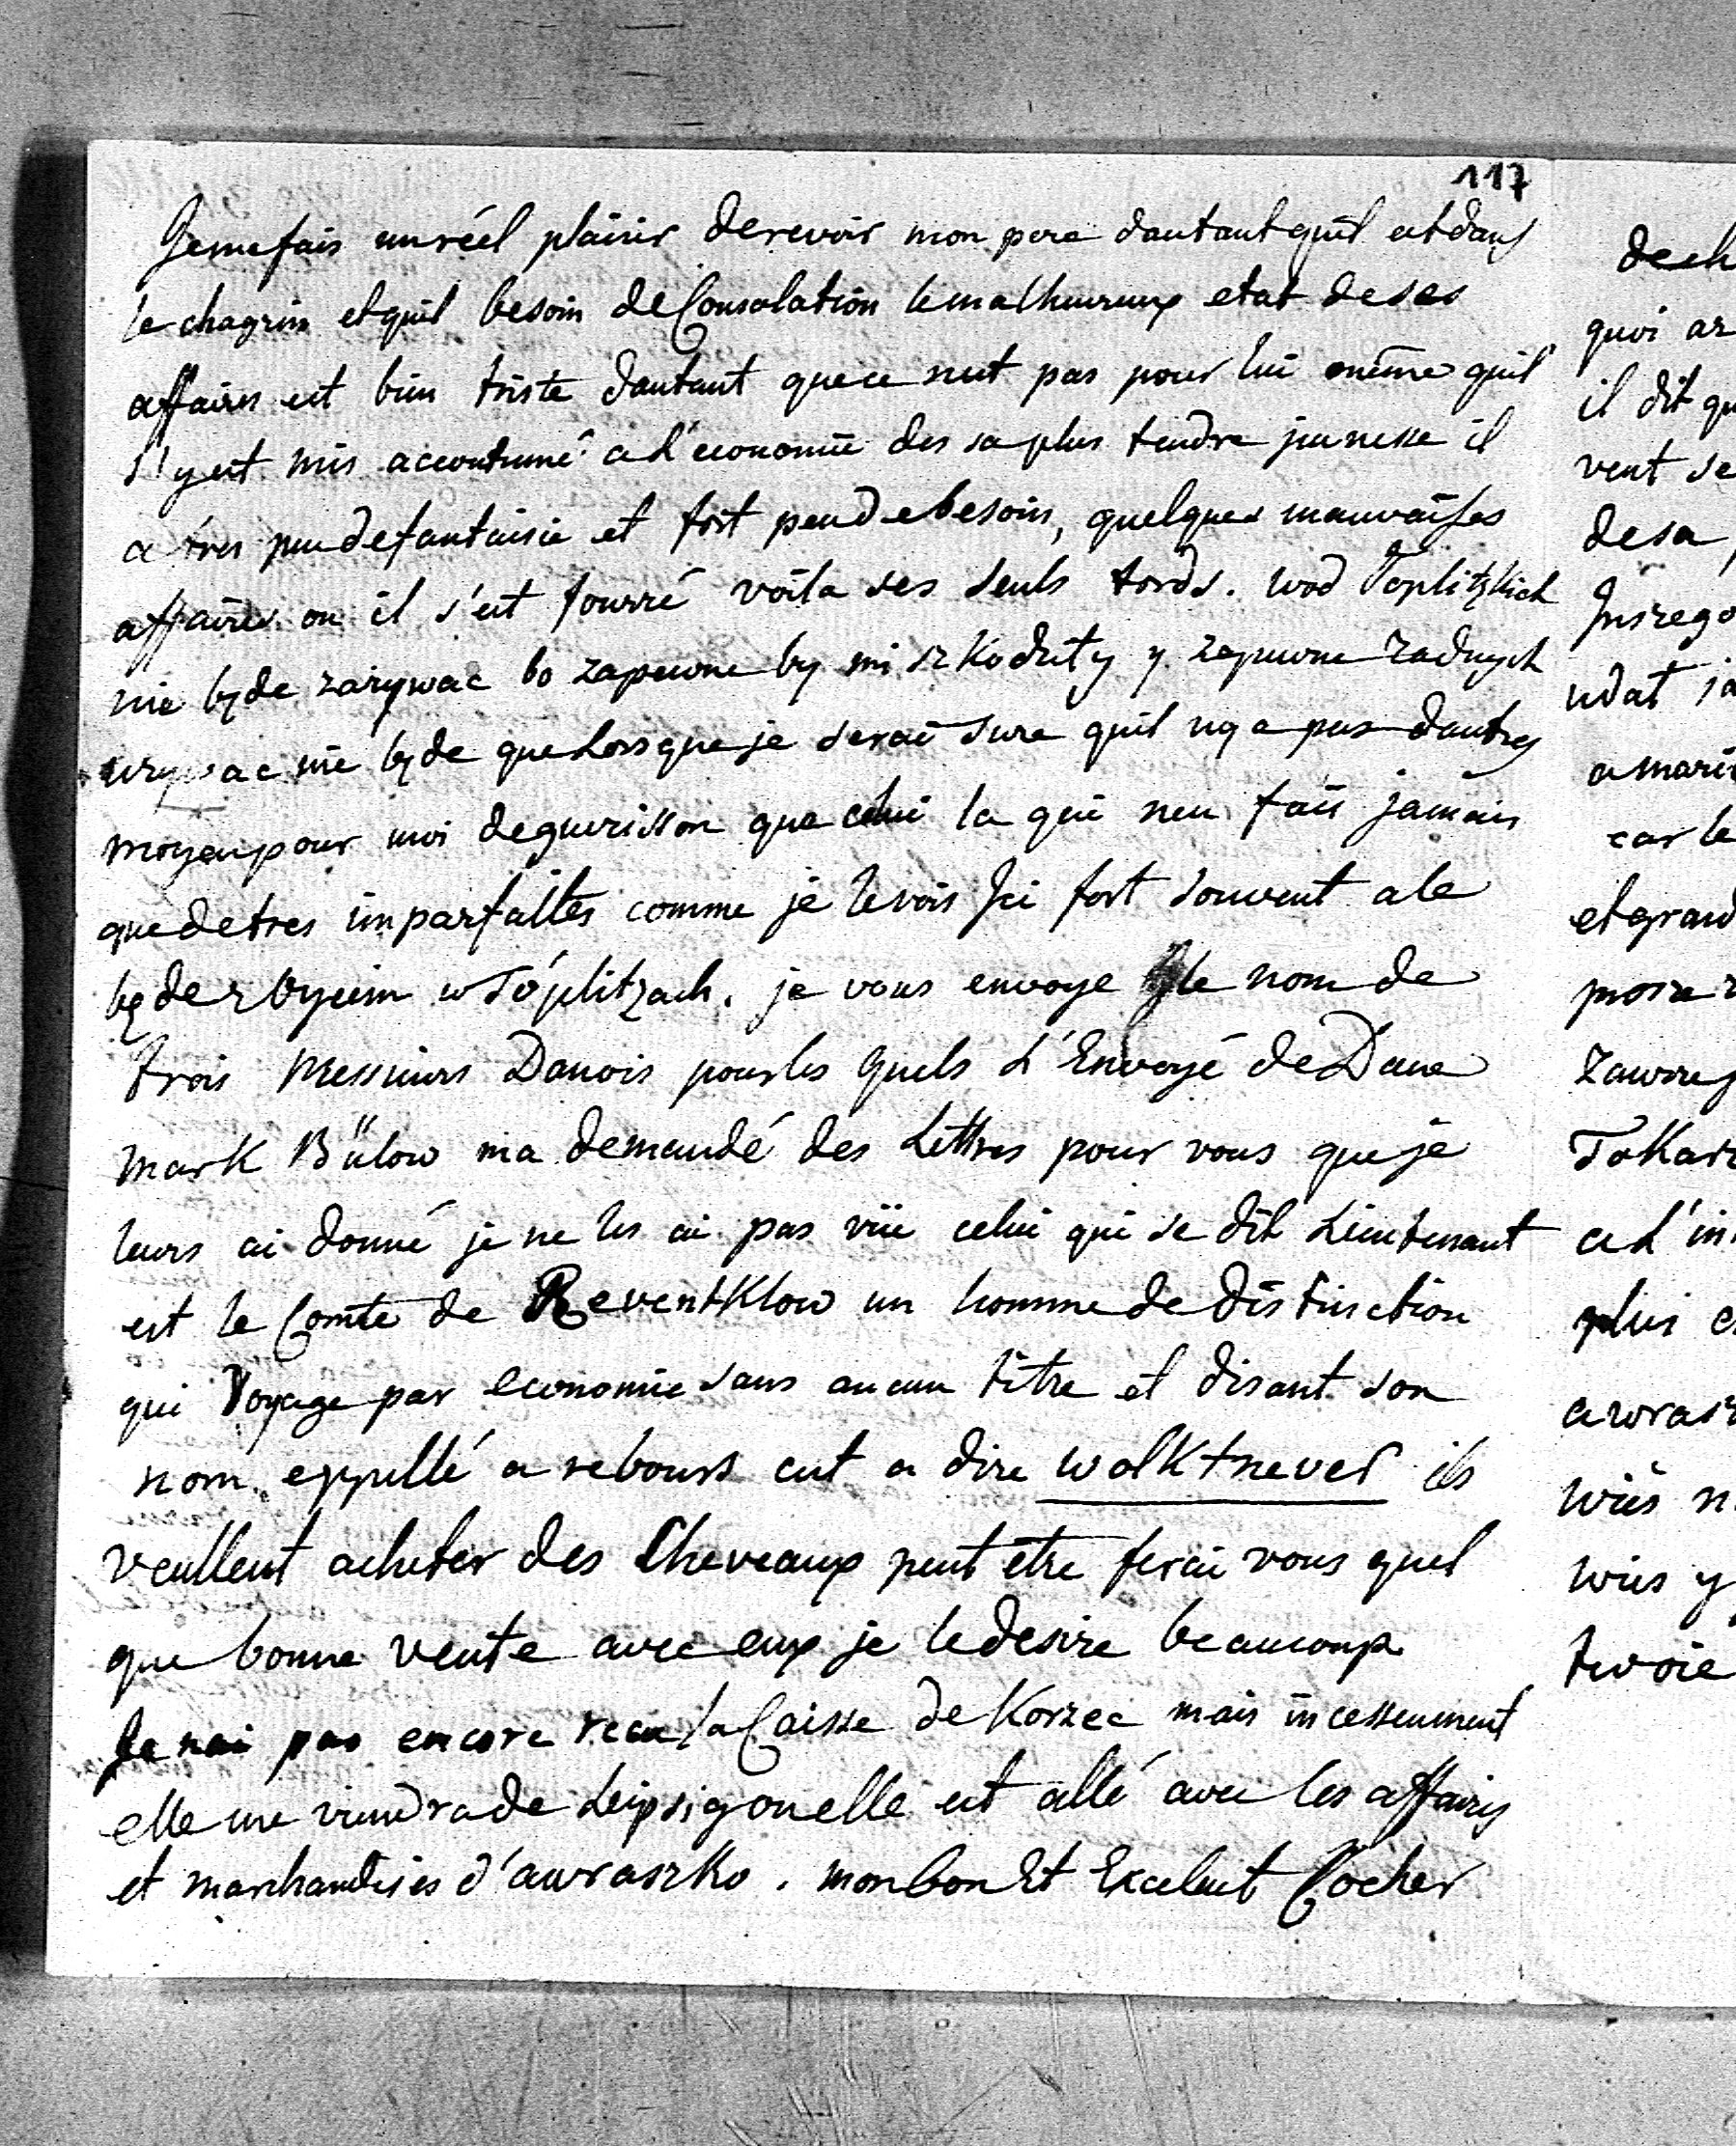 117
Je me fais un réel plaisir de revoir mon pere dautant quil est dans
le chagrin et quil besoin de Consolation le malheureux etat de ses
affaires est bien triste dautant que ce nest pas pour lui même quil
s'y est mis accoutumé a l'economie des sa plus tendre jeunesse il
a tres peu de fantaisie et fort peu de besoin, quelques mauvaises
affaires ou il s'est fourré voila ses seuls tords. wod Toplitzkich
nie będe zazywac bo zapewne by mi szkodziły y zapewne zadnych
uzywac nie będe que Lorsque je serai sure quil ny a pas dautres
moyen pour moi de guerisson que celui la qui nen fait jamais
que detres imparfaites comme je le vois Ici fort souvent ale
będe z byciem w Töplitzach. je vous envoye le nom de
trois Messieurs Danois pour les quels L'Envoyé de Dane
mark Bülow ma demandé des Lettres pour vous que je
leurs ai donné je ne les ai pas vüe celui qui se dit Lieutenant
est le Comte de Reventklow un homme de distinction
qui Voyage par economie sans aucun titre et disant son
nom eppellé a rebours cest a dire wolktnever ils
veullent acheter des Cheveaux peut etre ferai vous quel
que bonne vente avec eux je le desire beaucoup
Je nai pas encore recu la Caisse de Korzec mais incessenment
elle me viendra de Leipsig ou elle est allé avec les affaires
et marchandises d'awraszko. mon bon Et Excelent Cocher
dech
quoi
il dit
vent se
desa
udat
amari
car le
et grand
Tokarz
a L'in
plus
awrasz
wies
wies y